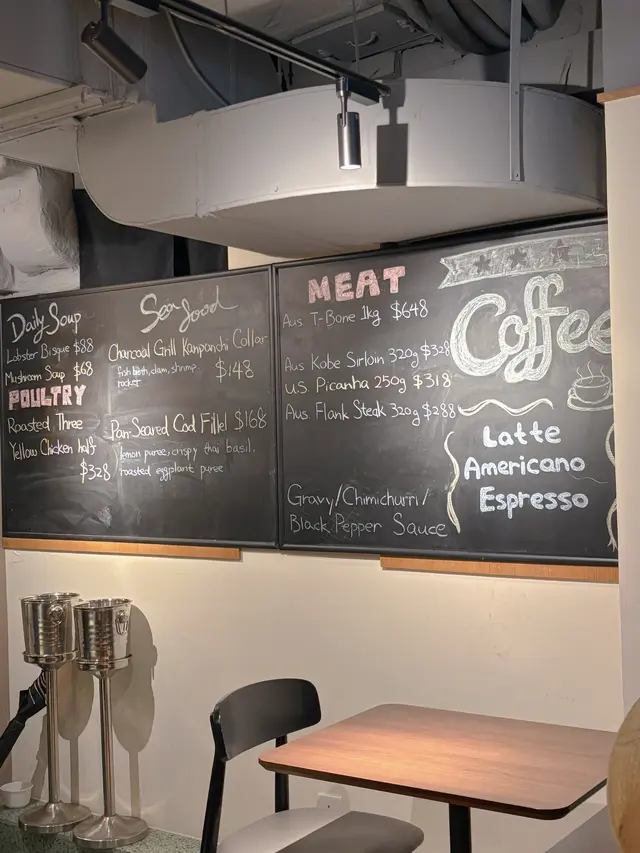 Daily Soup
Lobster Bisque $88
Mushroom Soup $68
POULTRY
Roasted Three
Yellow Chicken half
$328
Seafood
Charcoal Grill Kanpanchi Collar
fish broth, clam, shrimp,
rocket
$148
Pan-Seared Cod Fillet $168
lemon puree, crispy thai basil,
roasted eggplant puree
MEAT
Aus T-Bone 1kg $648
Aus Kobe Sirloin 320g $328
US Picanha 250g $318
Aus Flank Steak 320g $288
Gravy/Chimichurri/
Black Pepper Sauce
Coffee
Latte
Americano
Espresso